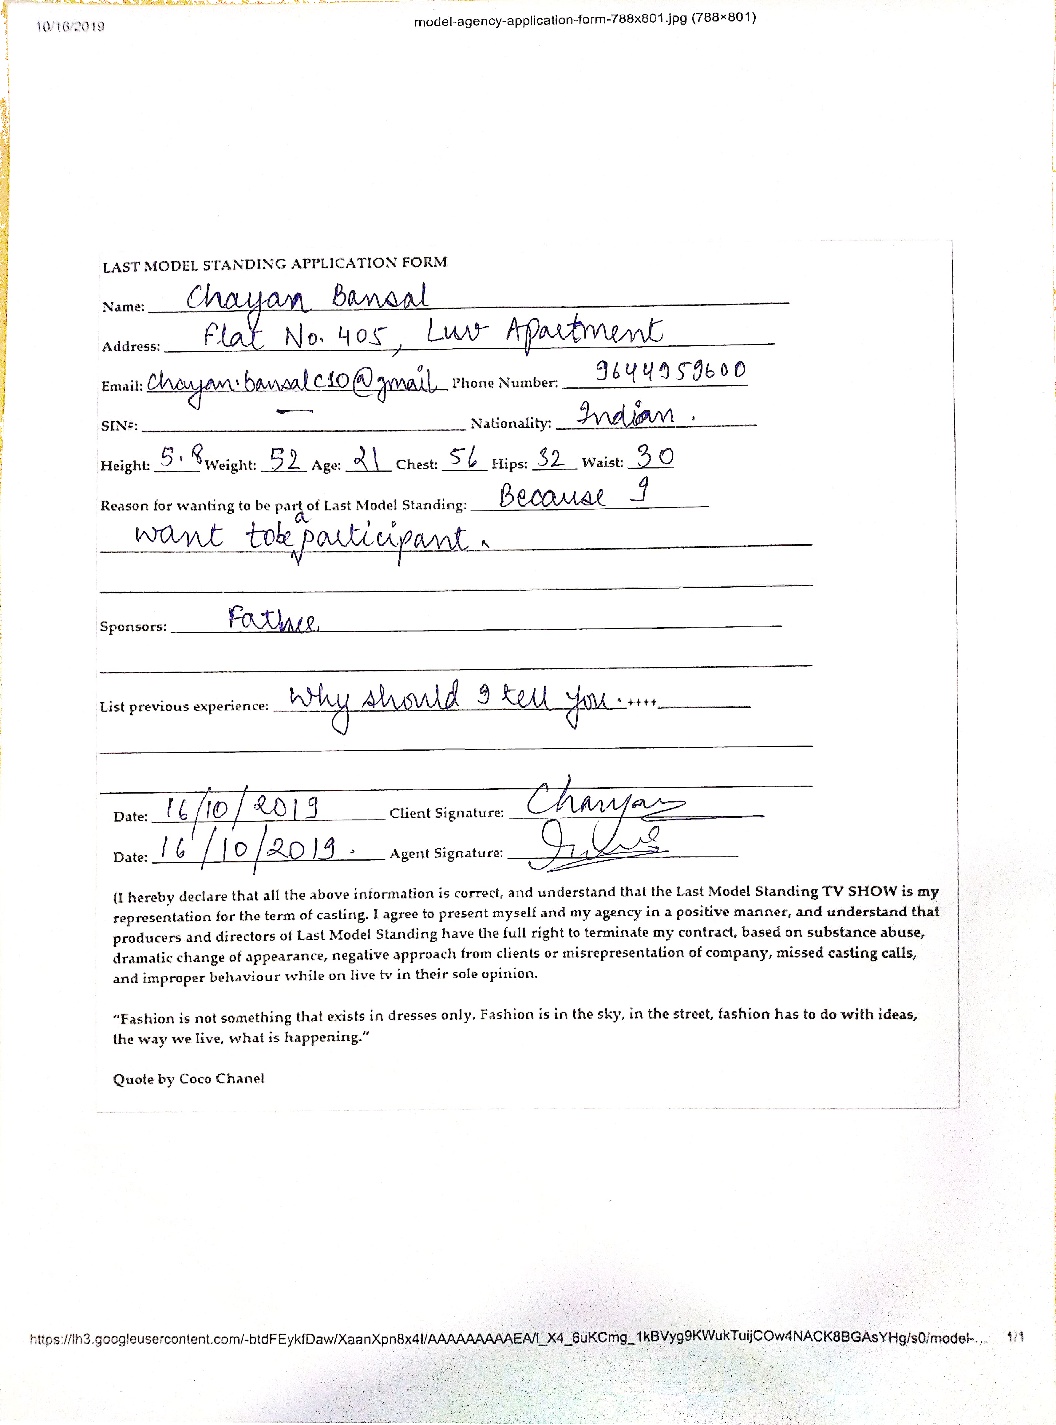 10/16/2019 model-agency-application-form-788x801.jpg (788×801)
LAST MODEL STANDING APPLICATION FORM
Name: Chayan Bansal
Address: Flat No. 405, Luv Apartment
Email: Chayan.bansalc10@gmail Phone Number: 9644959600
SIN#: — Nationality: Indian.
Height: 5.8 Weight: 52 Age: 21 Chest: 56 Hips: 32 Waist: 30
Reason for wanting to be part of Last Model Standing: Because I
want to be a participant.
Sponsors: Father
List previous experience: Why should I tell you.....
Date: 16/10/2019 Client Signature: Chayan
Date: 16/10/2019. Agent Signature:
(I hereby declare that all the above information is correct, and understand that the Last Model Standing TV SHOW is my
representation for the term of casting. I agree to present myself and my agency in a positive manner, and understand that
producers and directors of Last Model Standing have the full right to terminate my contract, based on substance abuse,
dramatic change of appearance, negative approach from clients or misrepresentation of company, missed casting calls,
and improper behaviour while on live tv in their sole opinion.
"Fashion is not something that exists in dresses only. Fashion is in the sky, in the street, fashion has to do with ideas,
the way we live, what is happening."
Quote by Coco Chanel
https://lh3.googleusercontent.com/-btdFEykfDaw/XaanXpn8x4I/AAAAAAAAAEA/I_X4_6uKCmg_1kBVyg9KWukTuijCOw4NACK8BGAsYHg/s0/model-... 1/1